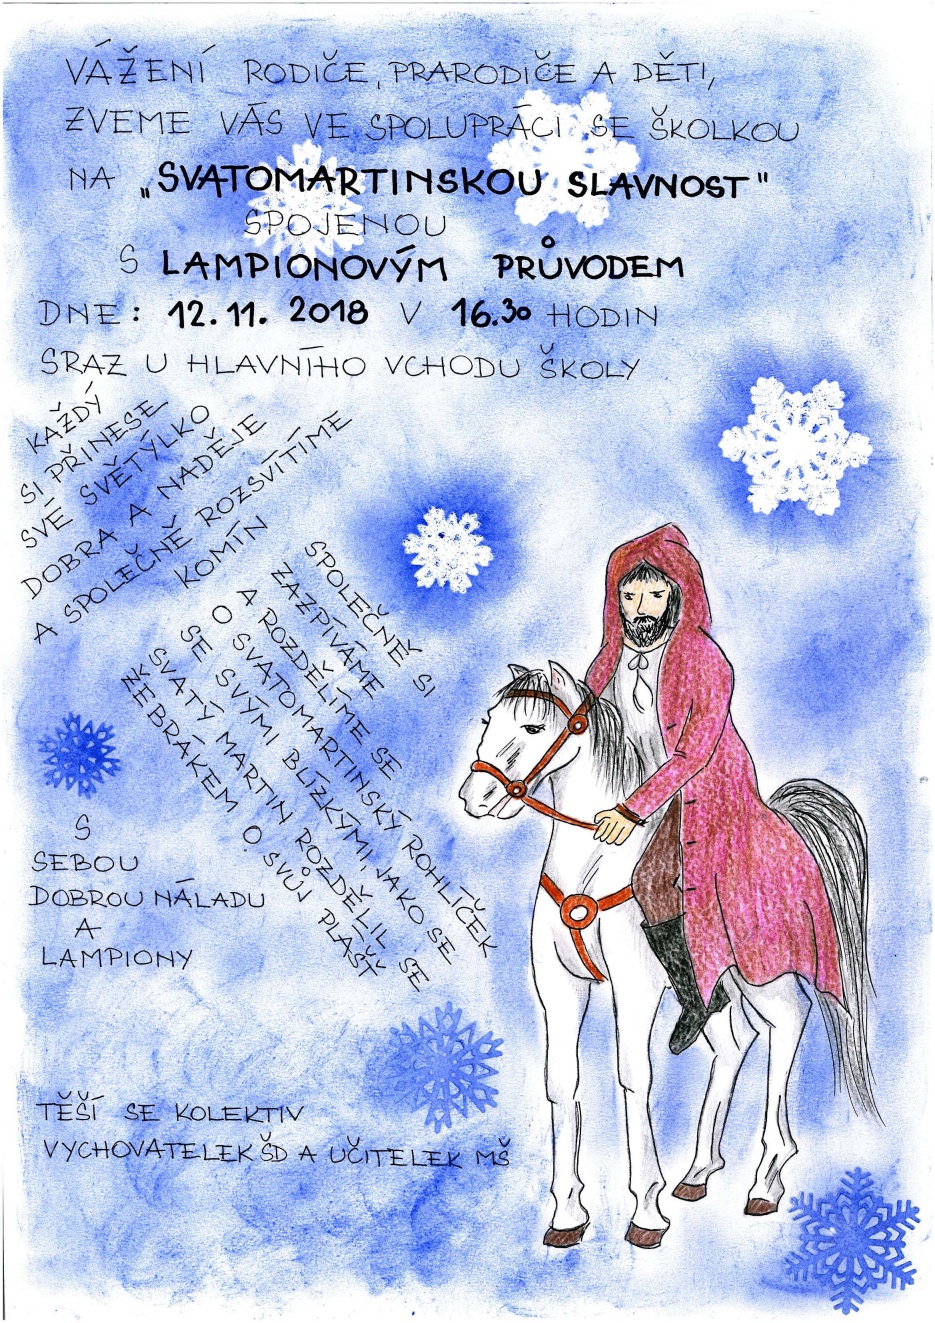 VÁŽENÍ RODIČE, PRARODIČE A DĚTI,
ZVEME VÁS VE SPOLUPRÁCI SE ŠKOLKOU
NA „SVATOMARTINSKOU SLAVNOST"
SPOJENOU
S LAMPIONOVÝM PRŮVODEM
DNE: 12.11. 2018 V 16.30 HODIN
SRAZ U HLAVNÍHO VCHODU ŠKOLY
KAŽDÝ
SI PŘINESE
SVÉ SVĚTÝLKO
DOBRA A NADĚJE
A SPOLEČNĚ ROZSVÍTÍME
KOMÍN
SPOLEČNĚ SI
ZAZPÍVÁME
A ROZDĚLÍME SE
O SVATOMARTINSKÝ ROHLÍČEK
SE SVÝMI BLÍZKÝMI, JAKO SE
SVATÝ MARTIN ROZDĚLIL SE
ŽEBRÁKEM O SVŮJ PLÁŠŤ
S
SEBOU
DOBROU NÁLADU
A
LAMPIONY
TĚŠÍ SE KOLEKTIV
VYCHOVATELEK ŠD A UČITELEK MŠ